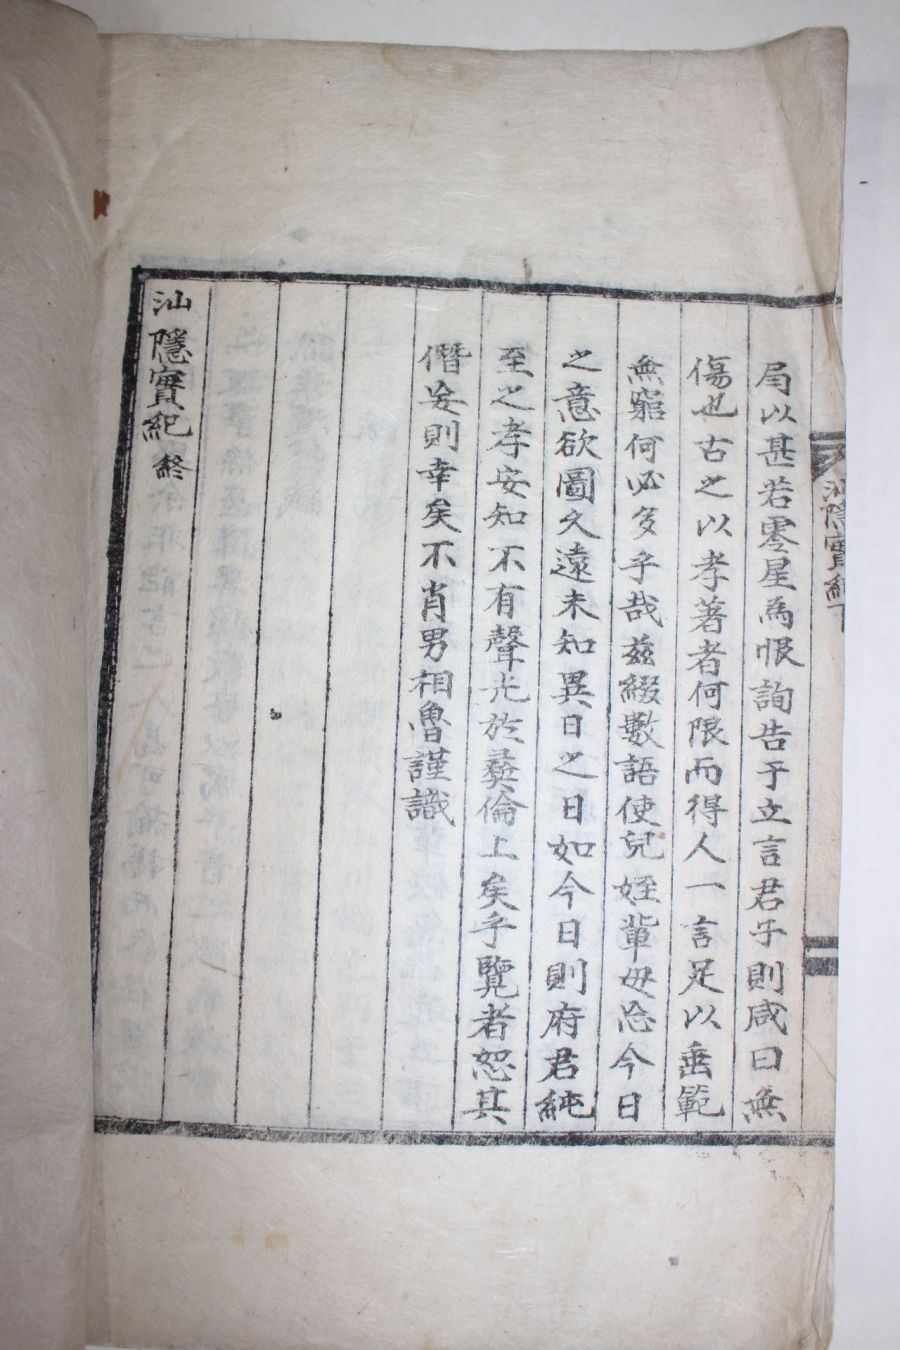 局以甚若零星為恨詢告于立言君子則咸曰無
傷也古之以孝著者何限而得人一言足以垂範
無窮何必多乎哉玆綴數語使兒姪輩毋忘今日
之意欲圖久遠未知異日之日如今日則府君純
至之孝安知不有聲光於彛倫上矣乎覽者恕其
僭妄則幸矣不肖男相魯謹識
汕隱實紀終
汕隱實紀下